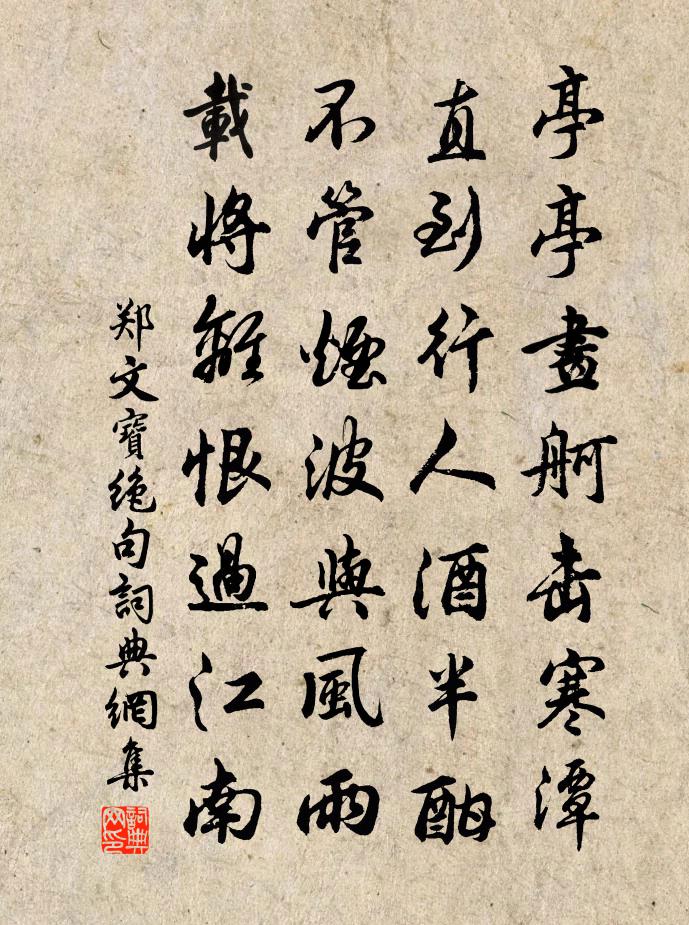 亭亭畫舸击寒潭
直到行人酒半酣
不管煙波與風雨
載將離恨過江南
郑文寶绝句詞典網集
詞典网印